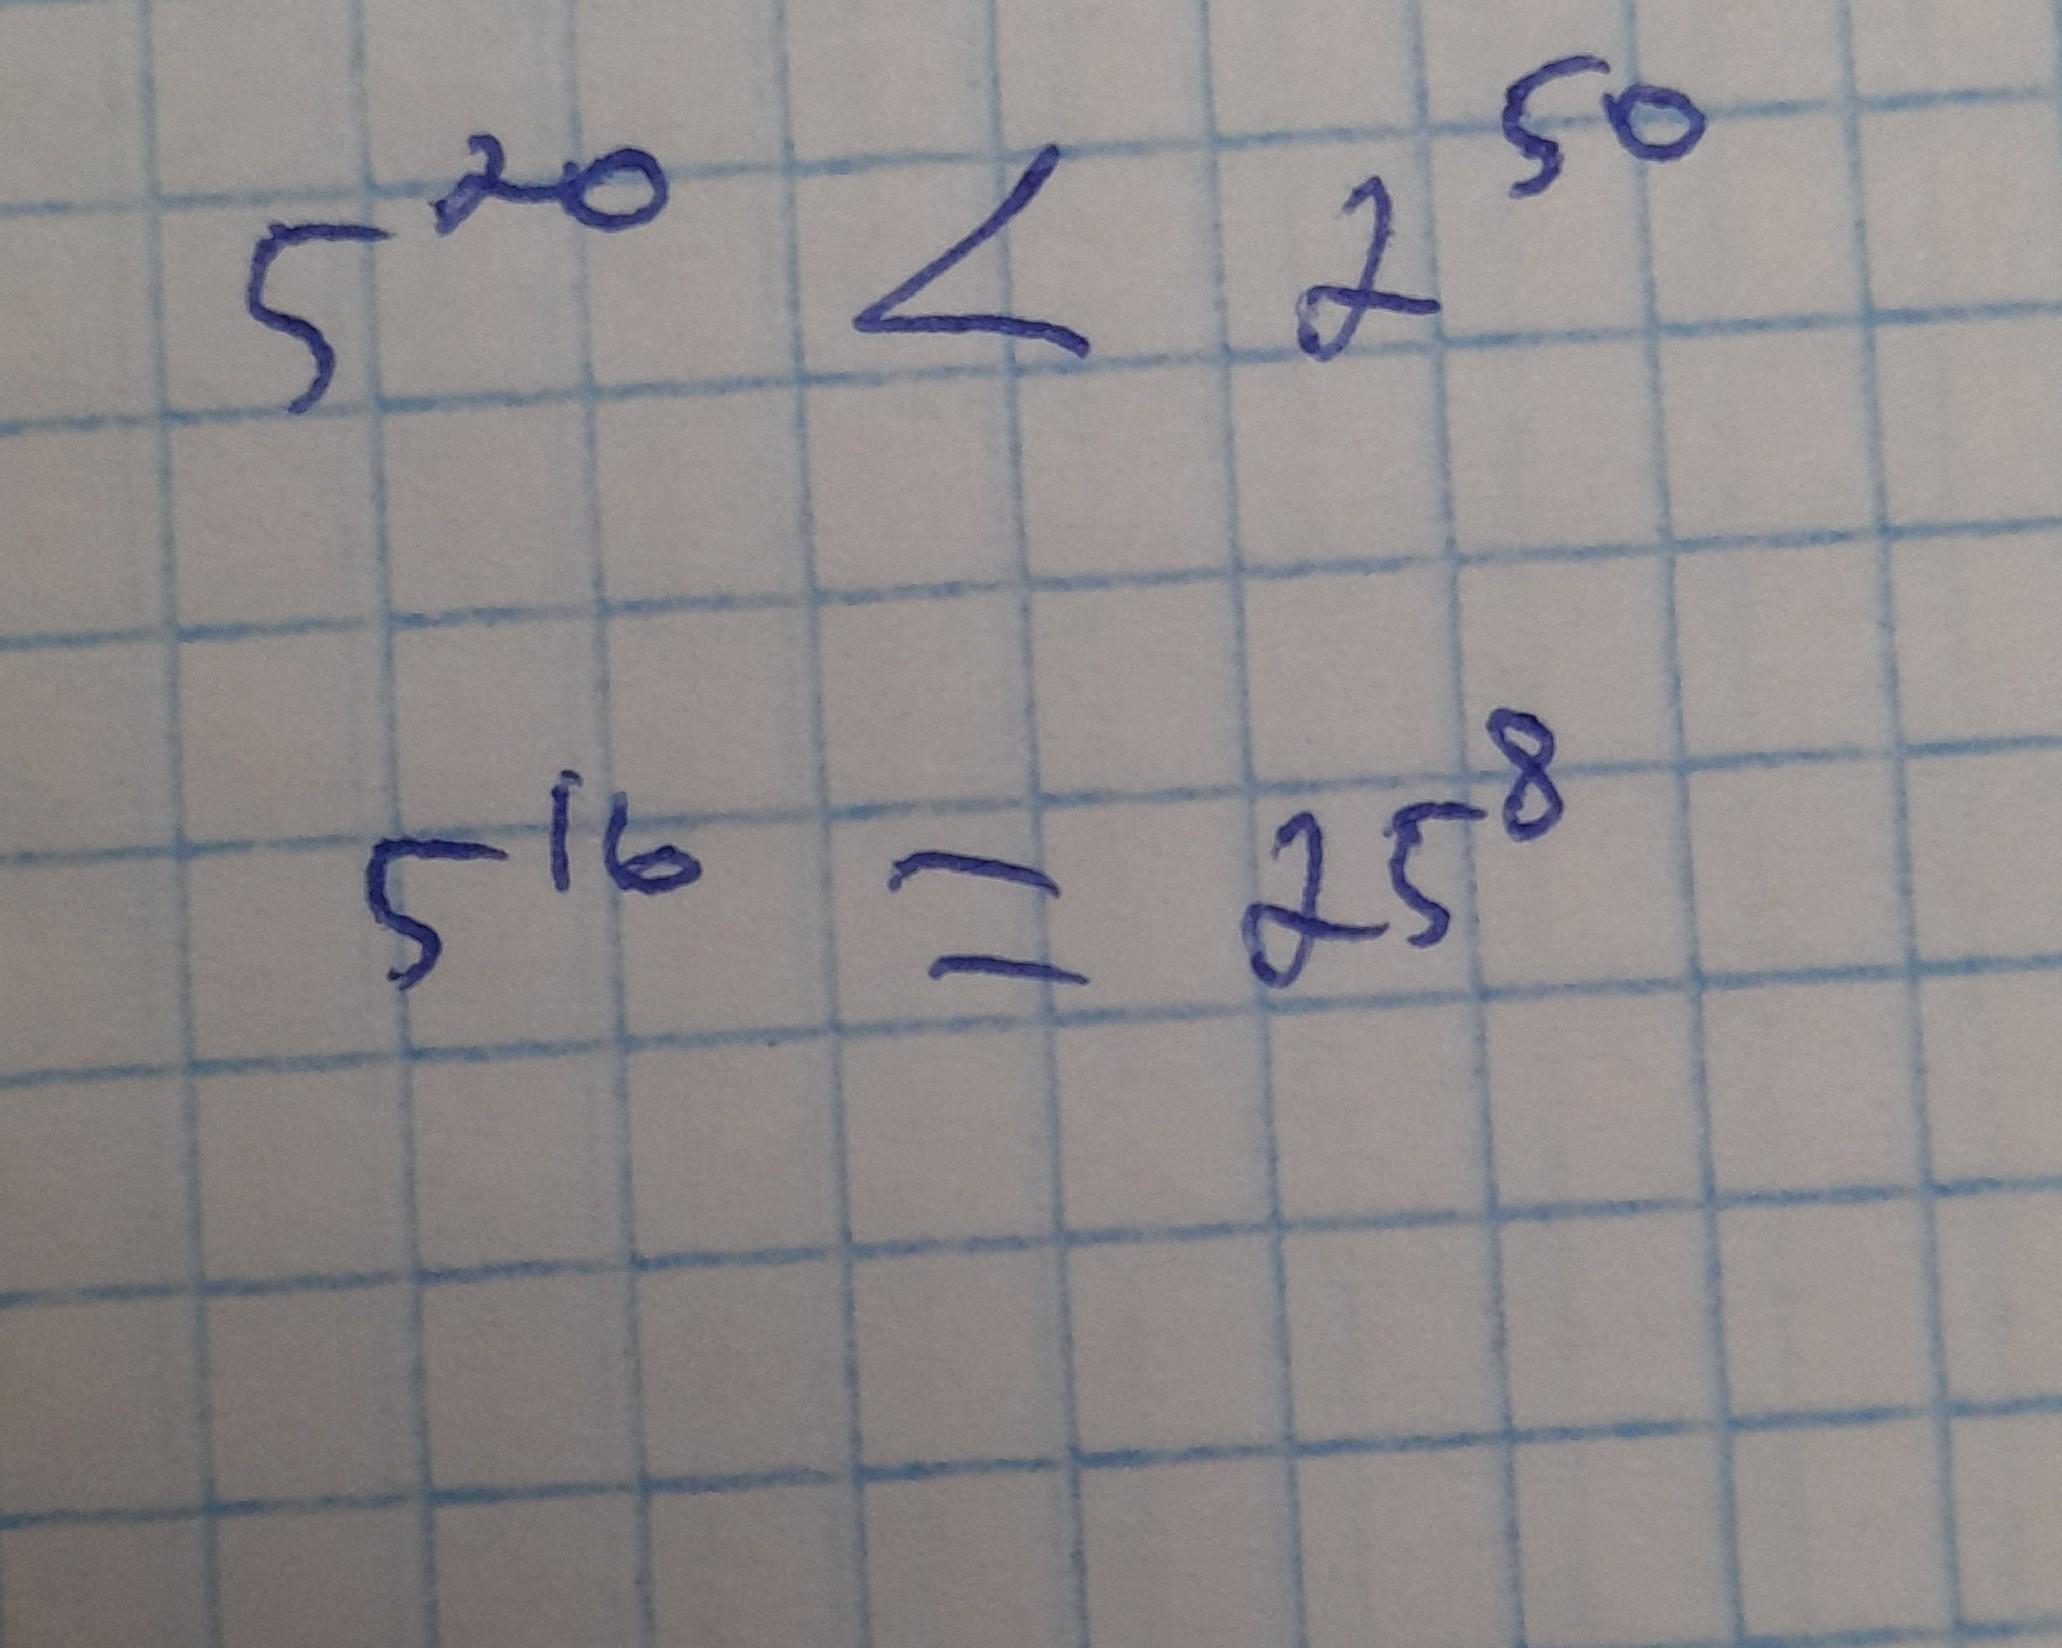 5²⁰ < 2⁵⁰
5¹⁶ = 25⁸